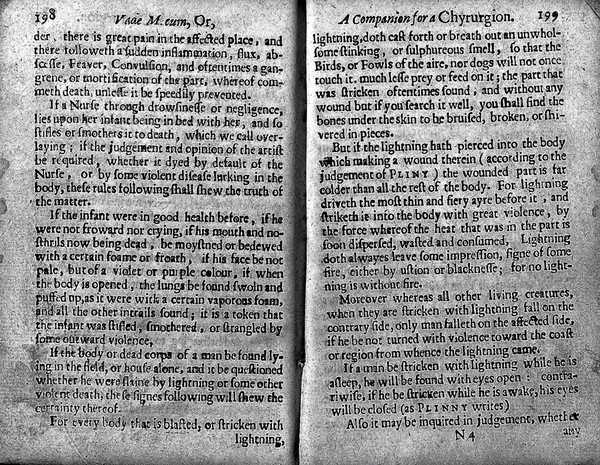 198 Vade Mecum, Or,
der, there is great pain in the affected place, and
there followeth a sudden inflammation, flux, ab-
scesse, Feaver, Convulsion, and oftentimes a gan-
grene, or mortification of the part, whereof com-
meth death, unlesse it be speedily prevented.
If a Nurse through drowsinesse or negligence,
lies upon her infant being in bed with her, and so
stifles or smothers it to death, which we call over-
laying; if the judgement and opinion of the artist
be required, whether it dyed by default of the
Nurse, or by some violent disease lurking in the
body, these rules following shall shew the truth of
the matter.
If the infant were in good health before, if he
were not froward nor crying, if his mouth and no-
sthrils now being dead, be moystned or bedewed
with a certain foame or froath, if his face be not
pale, but of a violet or purple colour, if when
the body is opened, the lungs be found swoln and
puffed up, as it were with a certain vaporous foam,
and all the other intrails sound; it is a token that
the infant was stifled, smothered, or strangled by
some outward violence.
If the body or dead corps of a man be found ly-
ing in the field, or house alone, and it be questioned
whether he were slaine by lightning or some other
violent death, these signes following will shew the
certainty thereof.
For every body that is blasted, or stricken with
lightning,
A Companion for a Chyrurgion. 199
lightning, doth cast forth or breath out an unwhol-
some stinking, or sulphureous smell, so that the
Birds, or Fowls of the aire, nor dogs will not once
touch it, much lesse prey or feed on it; the part that
was stricken oftentimes found, and without any
wound but if you search it well, you shall find the
bones under the skin to be bruised, broken, or shi-
vered in pieces.
But if the lightning hath pierced into the body
which making a wound therein (according to the
judgement of PLINY) the wounded part is far
colder than all the rest of the body. For lightning
driveth the most thin and fiery ayre before it, and
striketh it into the body with great violence, by
the force whereof the heat that was in the part is
soon dispersed, wasted and consumed, Lightning
doth alwayes leave some impression, signe of some
fire, either by ustion or blacknesse; for no light-
ning is without fire.
Moreover whereas all other living creatures,
when they are stricken with lightning fall on the
contrary side, only man falleth on the affected side,
if he be not turned with violence toward the coast
or region from whence the lightning came.
If a man be stricken with lightning while he is
asleep, he will be found with eyes open: contra-
riwise, if he be stricken while he is awake, his eyes
will be closed (as PLINNY writes)
Also it may be inquired in judgement, whether
N 4 any